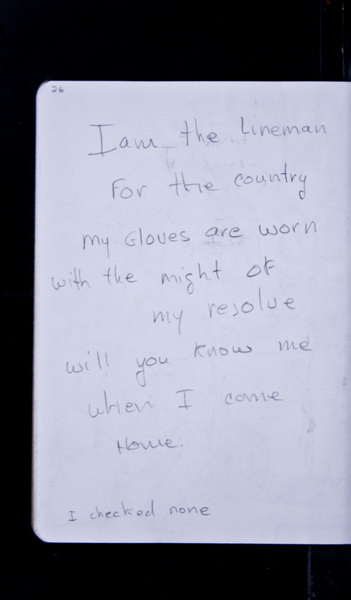 26
I am the Lineman
For the country
my Gloves are worn
with the might of
my resolve
will you know me
when I come
Home.
I checked none